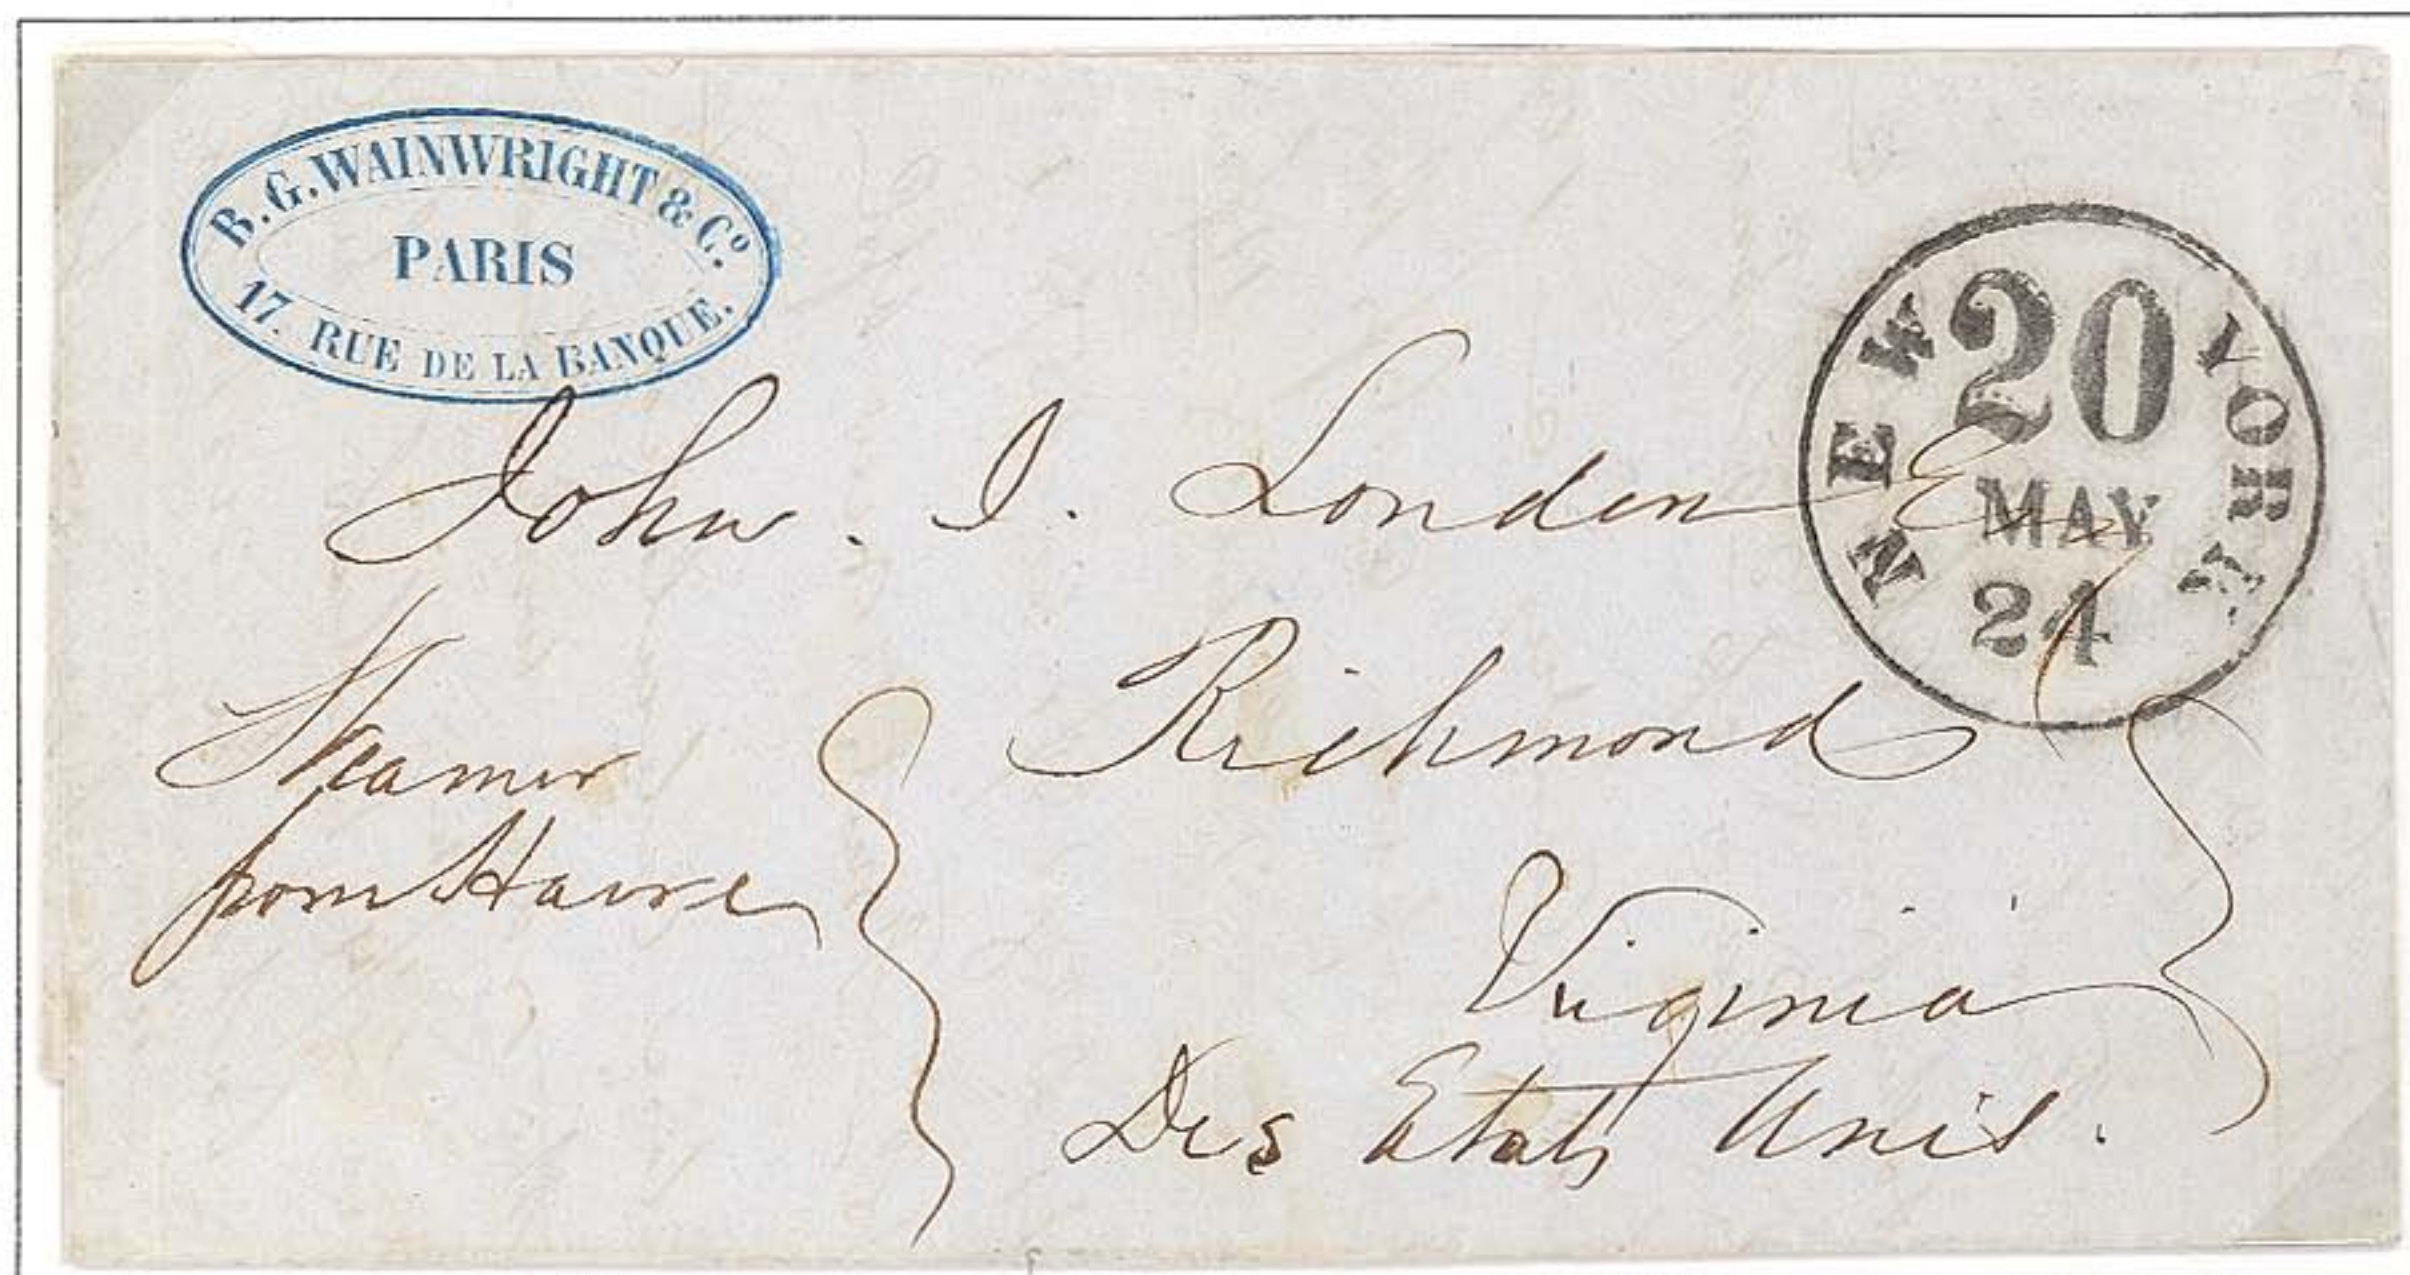 B. G. WAINWRIGHT & Cº.
PARIS
17. RUE DE LA BANQUE.
NEW YORK
20
MAY
24
John. I. London Esq
Richmond
Virginia
Des Etats Unis.
Steamer
from Havre